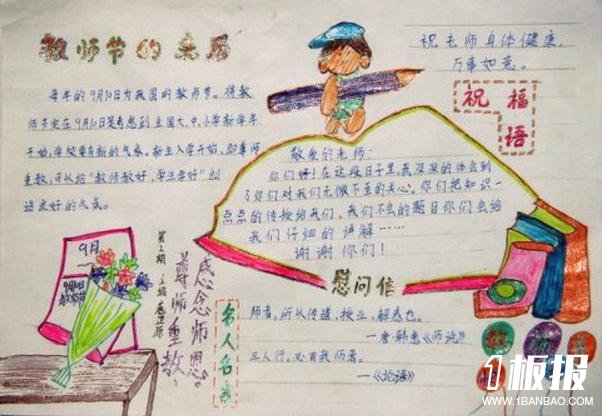 教师节的来历
每年的9月10日为我国的教师节。将教
师节定在9月10日是考虑到全国大、中、小学新学年
开始,学校要有新的气象。新生入学开始,即尊师
重教,可以给“教师教好,学生学好”创
造良好的气氛。
祝老师身体健康,
万事如意。
祝福
语
敬爱的老师:
你们好!在这段日子里我深深的体会到
了你们对我们无微不至的关心。你们把知识一
点点的传授给我们,我们不会的题目你们会给
我们仔细的讲解……
谢谢你们!
慰问信
9月
感念师恩。
尊师重教,
第2期
主编
名人名言
师者,所以传道、授业、解惑也。
—唐·韩愈《师说》
三人行,必有我师焉。
—《论语》
1板报
WWW.1BANBAO.COM